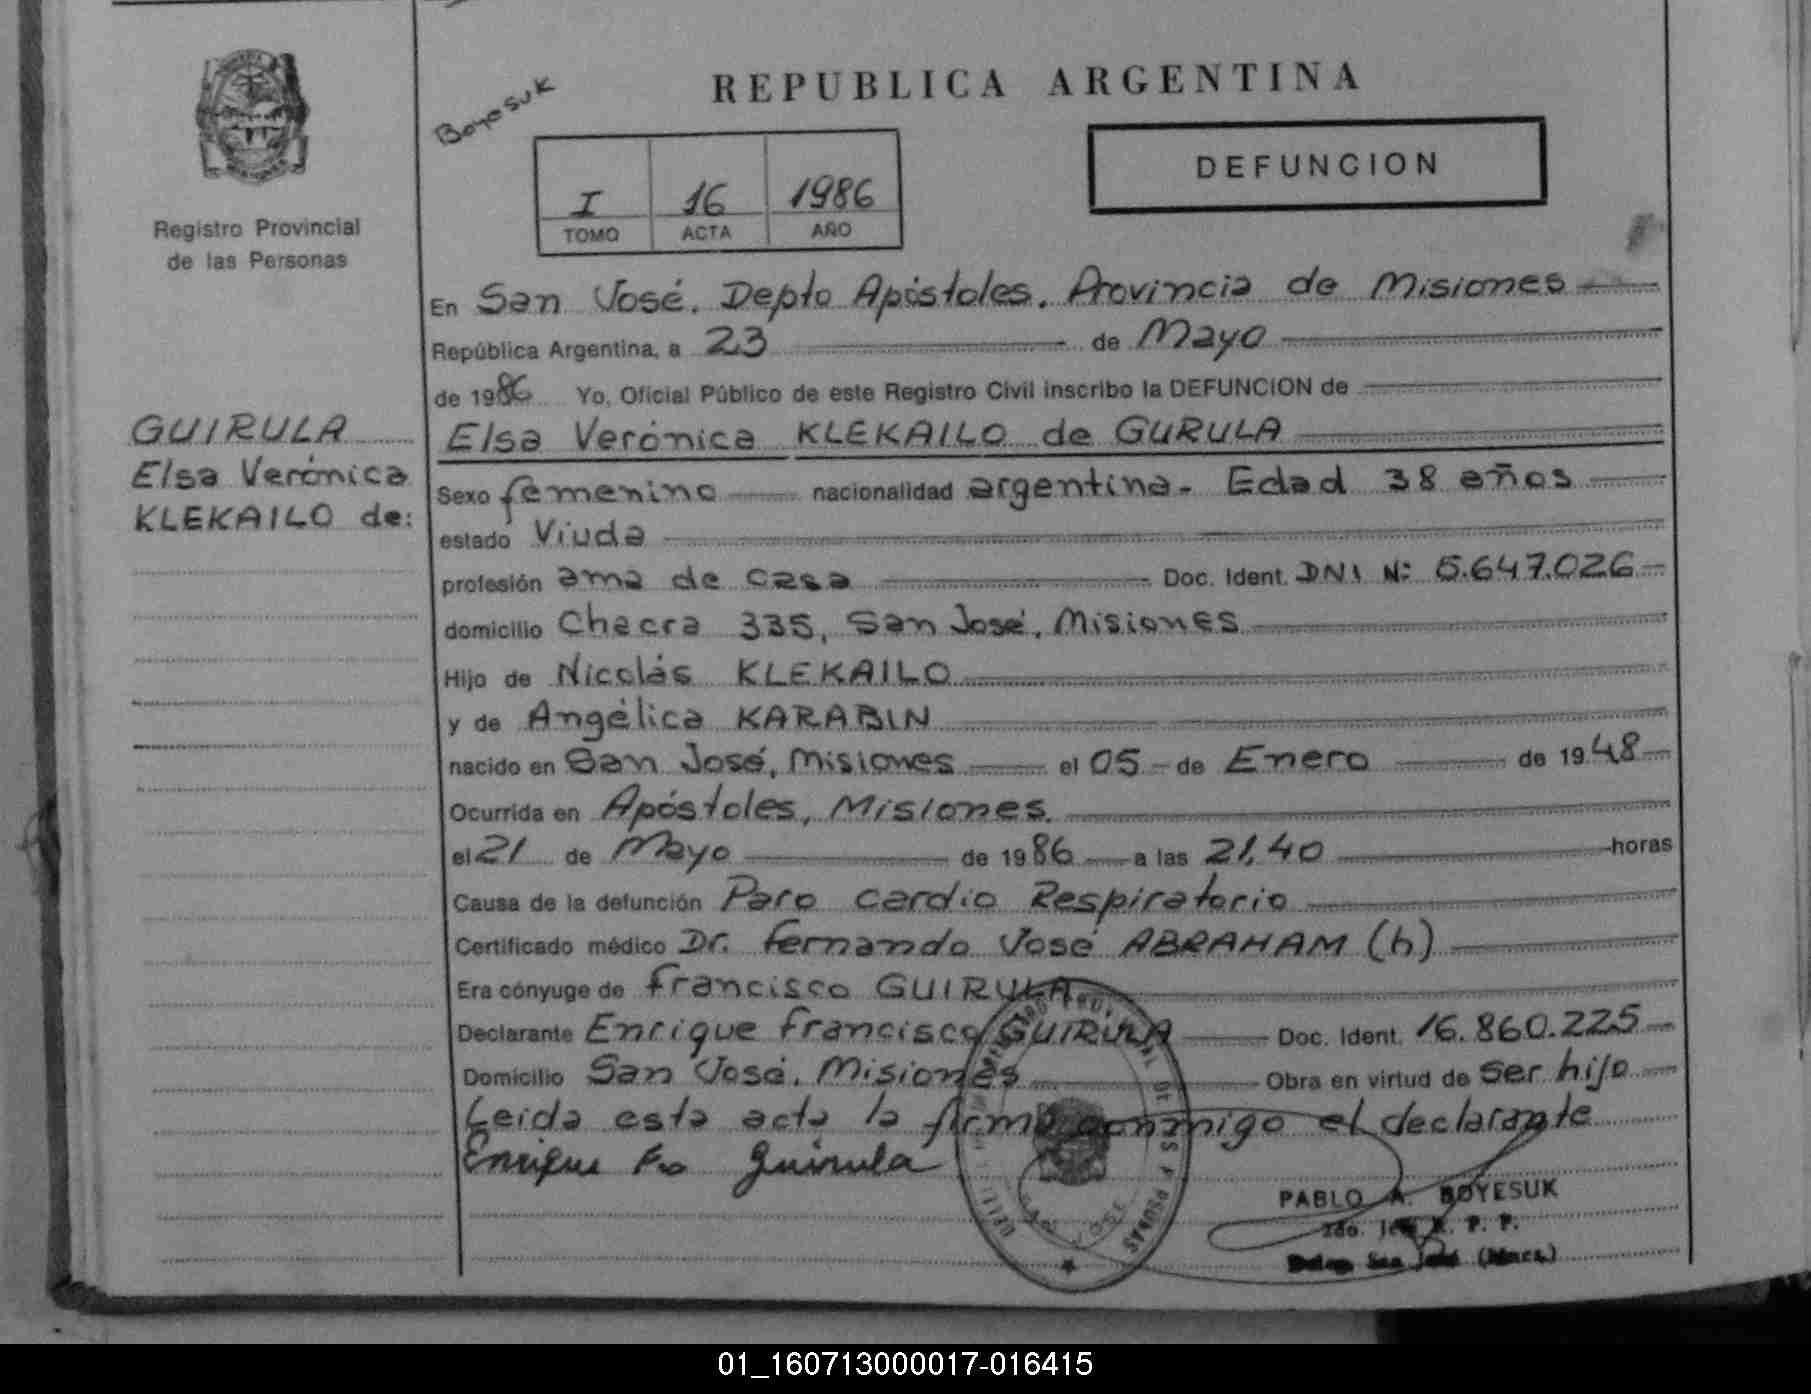 REPUBLICA ARGENTINA
Boyesuk
DEFUNCION
I 16 1986
TOMO ACTA AÑO
Registro Provincial
de las Personas
En San José. Depto Apóstoles. Provincia de Misiones
República Argentina, a 23 de Mayo
de 1986 Yo, Oficial Público de este Registro Civil inscribo la DEFUNCION de
GUIRULA
Elsa Verónica
KLEKAILO de:
Elsa Verónica KLEKAILO de GURULA
Sexo femenino nacionalidad argentina. Edad 38 años
estado Viuda
profesión ama de casa Doc. Ident. DNI Nº 5.647.026
domicilio Chacra 335, San José, Misiones
Hijo de Nicolás KLEKAILO
y de Angélica KARABIN
nacido en San José, Misiones el 05 de Enero de 1948
Ocurrida en Apóstoles, Misiones.
el 21 de Mayo de 1986 a las 21,40 horas
Causa de la defunción Paro cardio Respiratorio
Certificado médico Dr. Fernando José ABRAHAM (h)
Era cónyuge de Francisco GUIRULA
Declarante Enrique Francisco GUIRULA Doc. Ident. 16.860.225
Domicilio San José, Misiones Obra en virtud de ser hijo
Leida esta acta la firma conmigo el declarante
Enrique Fco Guirula
PABLO A. BOYESUK
2do. Jefe R. P. P.
San José (Mnes.)
01_160713000017-016415